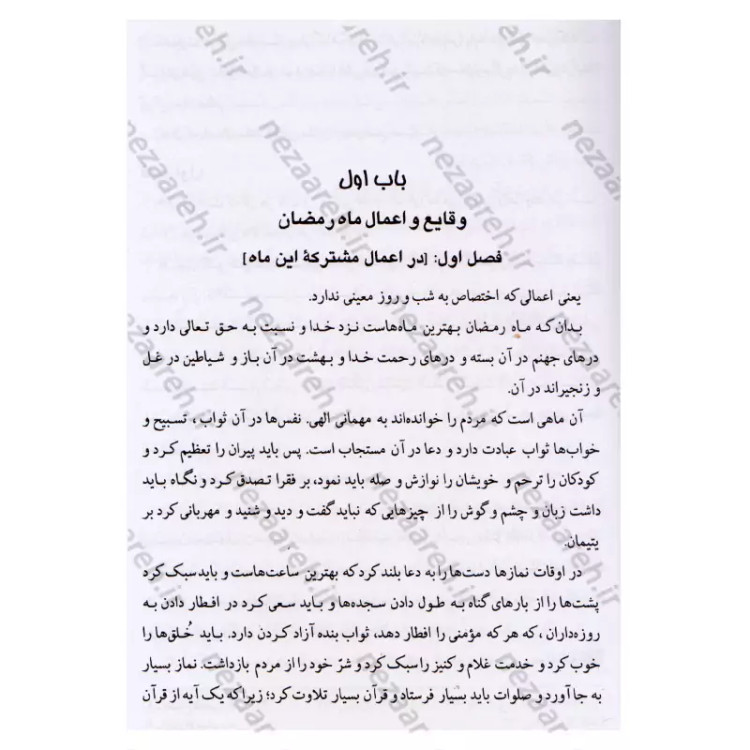 باب اول
وقایع و اعمال ماه رمضان
فصل اول: [در اعمال مشترکهٔ این ماه]
یعنی اعمالی که اختصاص به شب و روز معینی ندارد.
بدان که ماه رمضان بهترین ماه‌هاست نزد خدا و نسبت به حق تعالی دارد و
درهای جهنم در آن بسته و درهای رحمت خدا و بهشت در آن باز و شیاطین در غل
و زنجیراند در آن.
آن ماهی است که مردم را خوانده‌اند به مهمانی الهی. نفس‌ها در آن ثواب، تسبیح و
خواب‌ها ثواب عبادت دارد و دعا در آن مستجاب است. پس باید پیران را تعظیم کرد و
کودکان را ترحم و خویشان را نوازش و صله باید نمود، بر فقرا تصدق کرد و نگاه باید
داشت زبان و چشم و گوش را از چیزهایی که نباید گفت و دید و شنید و مهربانی کرد بر
یتیمان.
در اوقات نمازها دست‌ها را به دعا بلند کرد که بهترین ساعت‌هاست و باید سبک کرد
پشت‌ها را از بارهای گناه به طول دادن سجده‌ها و باید سعی کرد در افطار دادن به
روزه‌داران، که هر که مؤمنی را افطار دهد، ثواب بنده آزاد کردن دارد. باید خُلق‌ها را
خوب کرد و خدمت غلام و کنیز را سبک کرد و شرّ خود را از مردم بازداشت. نماز بسیار
به جا آورد و صلوات باید بسیار فرستاد و قرآن بسیار تلاوت کرد؛ زیرا که یک آیه از قرآن
nezaareh.ir
nezaareh.ir
nezaareh.ir
nezaareh.ir
nezaareh.ir
nezaareh.ir
nezaareh.ir
nezaareh.ir